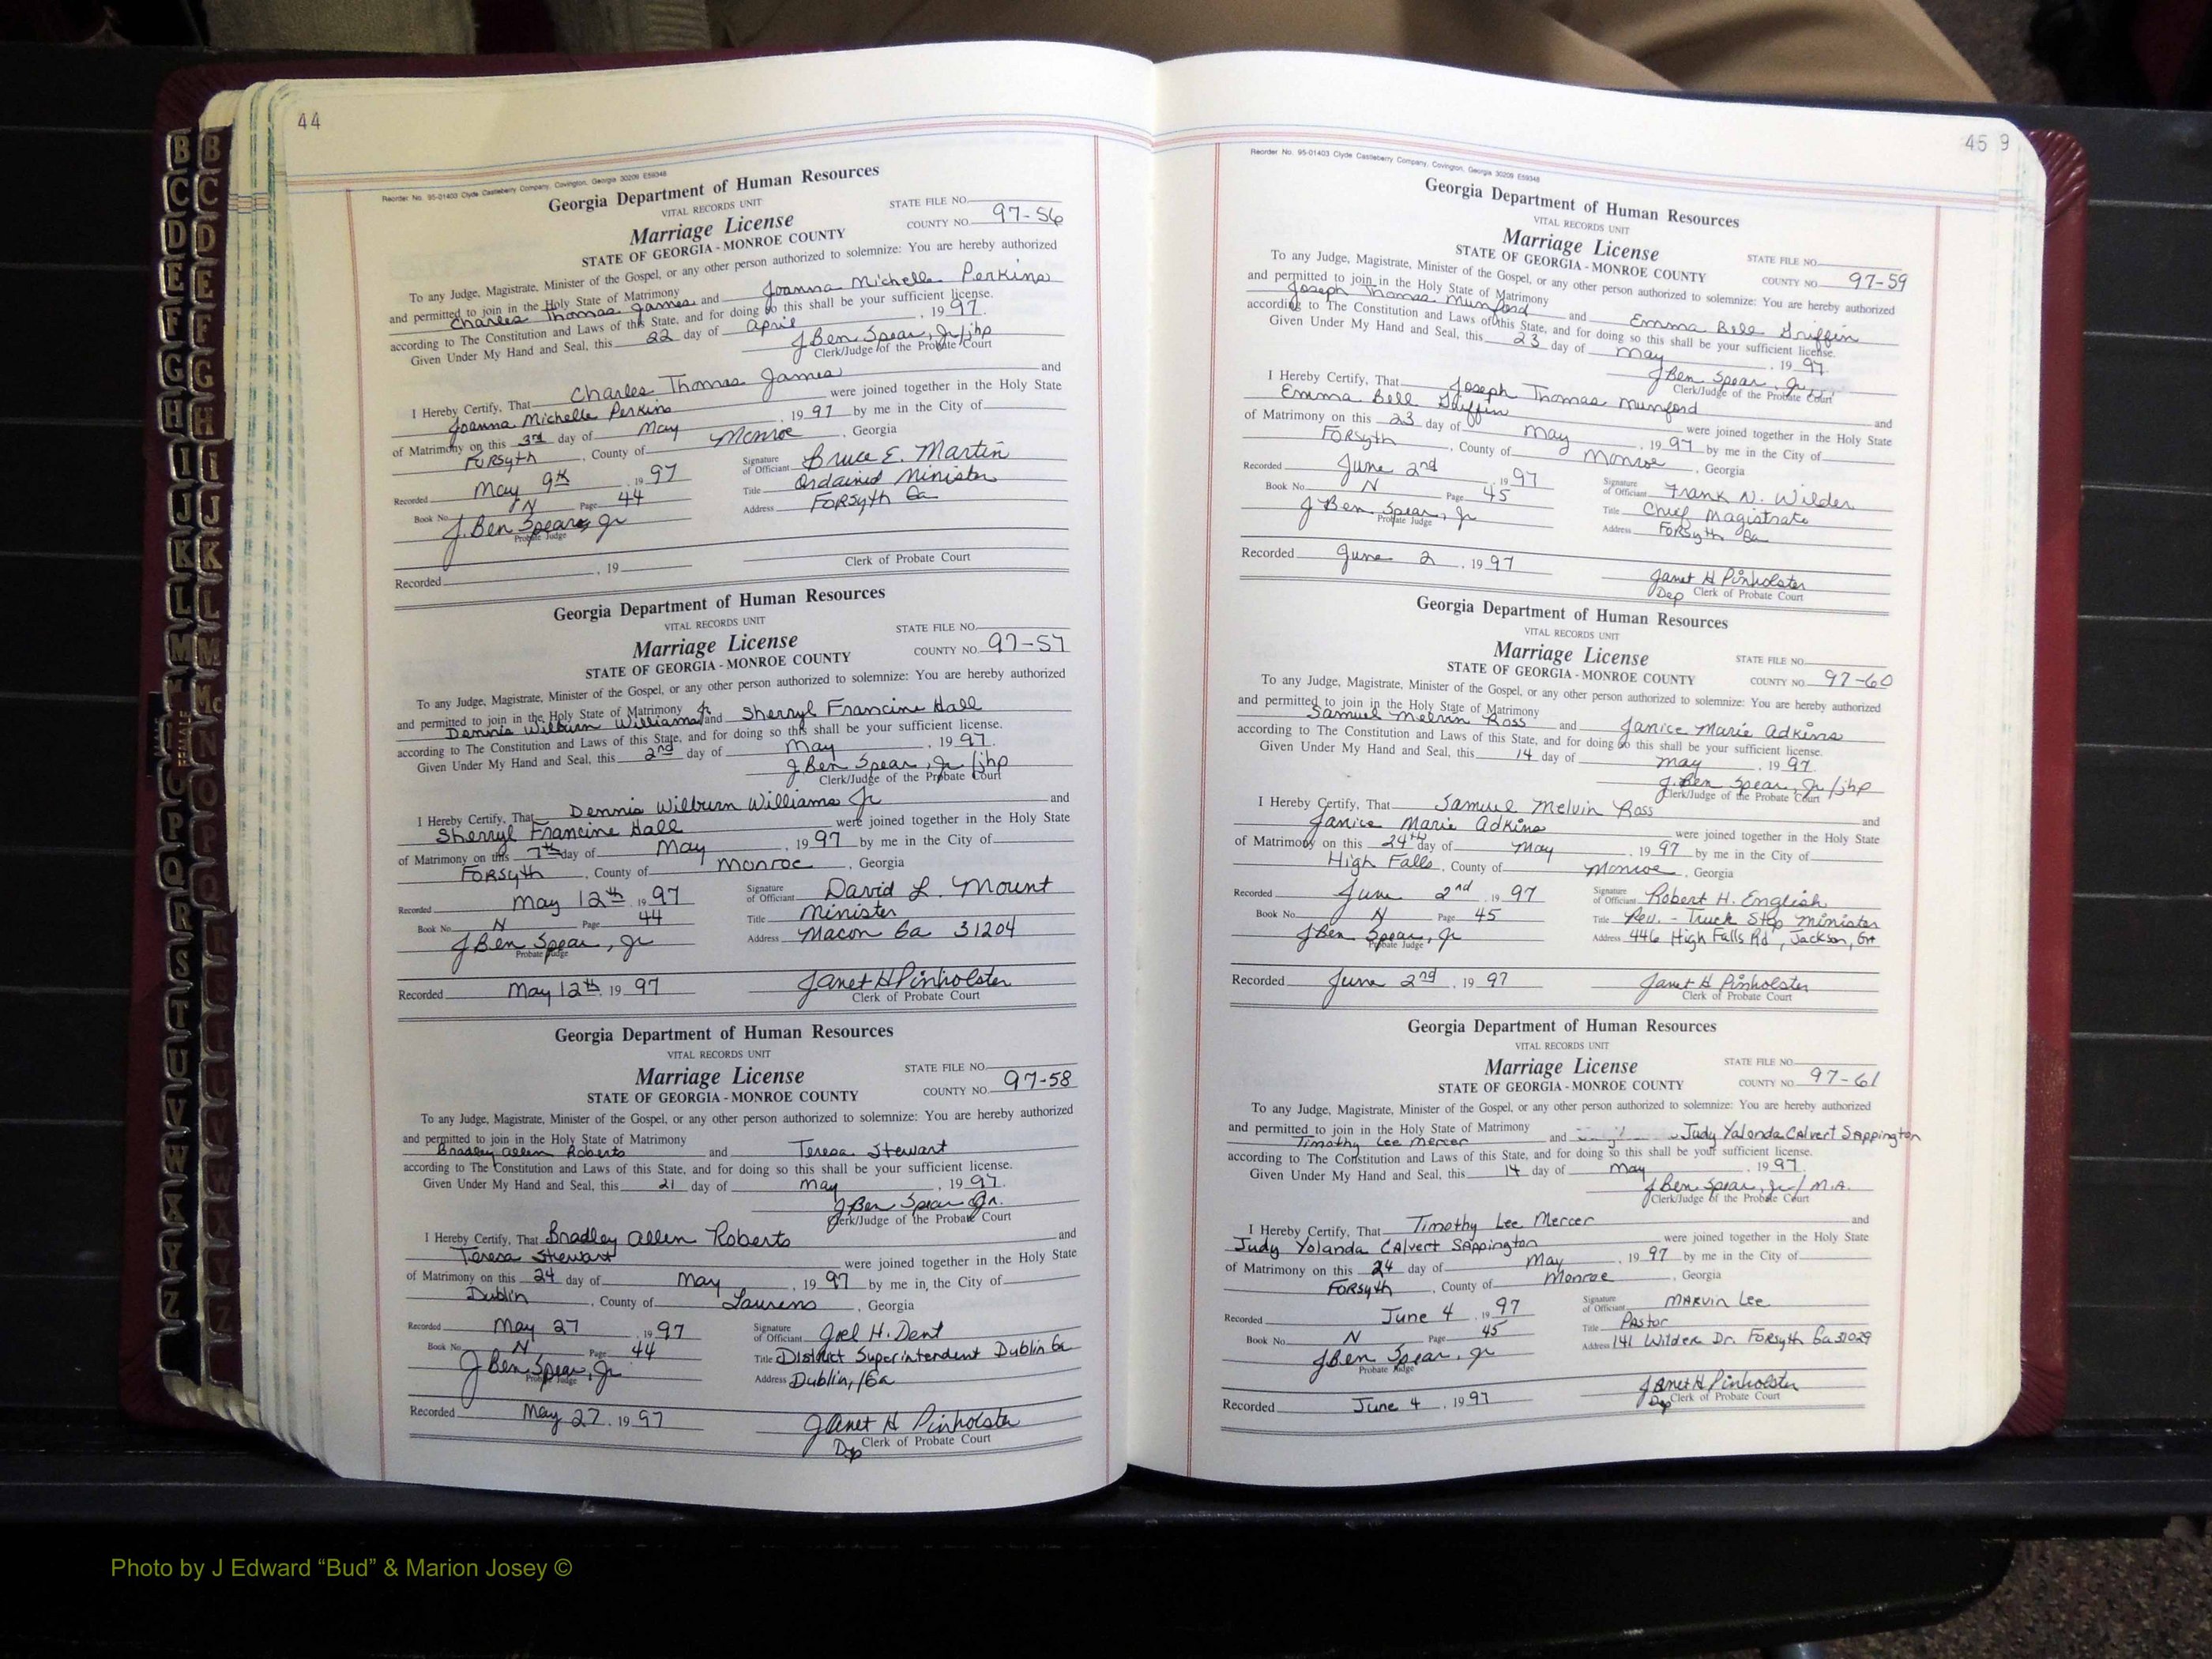 44
Reorder No. 95-01403 Clyde Castleberry Company, Covington, Georgia 30209 E59348
Georgia Department of Human Resources
VITAL RECORDS UNIT
Marriage License
STATE OF GEORGIA - MONROE COUNTY
STATE FILE NO.
COUNTY NO. 97-56
To any Judge, Magistrate, Minister of the Gospel, or any other person authorized to solemnize: You are hereby authorized
and permitted to join in the Holy State of Matrimony
Charles Thomas James and Joanna Michelle Perkins
according to The Constitution and Laws of this State, and for doing so this shall be your sufficient license.
Given Under My Hand and Seal, this 22 day of April, 1997.
J Ben Spear, Jr/jhp
Clerk/Judge of the Probate Court
I Hereby Certify, That Charles Thomas James and
Joanna Michelle Perkins were joined together in the Holy State
of Matrimony on this 3rd day of May, 1997 by me in the City of
Forsyth, County of Monroe, Georgia
Recorded May 9th, 1997
Book No. N Page 44
J. Ben Spear, Jr
Probate Judge
Signature of Officiant Bruce E. Martin
Title Ordained Minister
Address Forsyth Ga
Recorded , 19
Clerk of Probate Court
Georgia Department of Human Resources
VITAL RECORDS UNIT
Marriage License
STATE OF GEORGIA - MONROE COUNTY
STATE FILE NO.
COUNTY NO. 97-57
To any Judge, Magistrate, Minister of the Gospel, or any other person authorized to solemnize: You are hereby authorized
and permitted to join in the Holy State of Matrimony
Dennis Wilburn Williams Jr and Sherryl Francine Hall
according to The Constitution and Laws of this State, and for doing so this shall be your sufficient license.
Given Under My Hand and Seal, this 2nd day of May, 1997.
J Ben Spear, Jr/jhp
Clerk/Judge of the Probate Court
I Hereby Certify, That Dennis Wilburn Williams Jr and
Sherryl Francine Hall were joined together in the Holy State
of Matrimony on this 7th day of May, 1997 by me in the City of
Forsyth, County of Monroe, Georgia
Recorded May 12th, 1997
Book No. N Page 44
J Ben Spear, Jr
Probate Judge
Signature of Officiant David L. Mount
Title Minister
Address Macon Ga 31204
Recorded May 12th, 1997
Janet H Pinholster
Clerk of Probate Court
Georgia Department of Human Resources
VITAL RECORDS UNIT
Marriage License
STATE OF GEORGIA - MONROE COUNTY
STATE FILE NO.
COUNTY NO. 97-58
To any Judge, Magistrate, Minister of the Gospel, or any other person authorized to solemnize: You are hereby authorized
and permitted to join in the Holy State of Matrimony
Bradley Allen Roberts and Teresa Stewart
according to The Constitution and Laws of this State, and for doing so this shall be your sufficient license.
Given Under My Hand and Seal, this 21 day of May, 1997.
J Ben Spear Jr.
Clerk/Judge of the Probate Court
I Hereby Certify, That Bradley Allen Roberts and
Teresa Stewart were joined together in the Holy State
of Matrimony on this 24 day of May, 1997 by me in, the City of
Dublin, County of Laurens, Georgia
Recorded May 27, 1997
Book No. N Page 44
J Ben Spear, Jr
Probate Judge
Signature of Officiant Joel H. Dent
Title District Superintendent Dublin Ga
Address Dublin, Ga
Recorded May 27, 1997
Janet H Pinholster
Dep Clerk of Probate Court
45 9
Reorder No. 95-01403 Clyde Castleberry Company, Covington, Georgia 30209 E59348
Georgia Department of Human Resources
VITAL RECORDS UNIT
Marriage License
STATE OF GEORGIA - MONROE COUNTY
STATE FILE NO.
COUNTY NO. 97-59
To any Judge, Magistrate, Minister of the Gospel, or any other person authorized to solemnize: You are hereby authorized
and permitted to join in the Holy State of Matrimony
Joseph Thomas Munford and Emma Bell Griffin
according to The Constitution and Laws of this State, and for doing so this shall be your sufficient license.
Given Under My Hand and Seal, this 23 day of May, 1997.
J Ben Spear, Jr.
Clerk/Judge of the Probate Court
I Hereby Certify, That Joseph Thomas Munford and
Emma Bell Griffin were joined together in the Holy State
of Matrimony on this 23 day of May, 1997 by me in the City of
Forsyth, County of Monroe, Georgia
Recorded June 2nd, 1997
Book No. N Page 45
J Ben Spear, Jr
Probate Judge
Signature of Officiant Frank N. Wilder
Title Chief Magistrate
Address Forsyth Ga
Recorded June 2, 1997
Janet H Pinholster
Dep Clerk of Probate Court
Georgia Department of Human Resources
VITAL RECORDS UNIT
Marriage License
STATE OF GEORGIA - MONROE COUNTY
STATE FILE NO.
COUNTY NO. 97-60
To any Judge, Magistrate, Minister of the Gospel, or any other person authorized to solemnize: You are hereby authorized
and permitted to join in the Holy State of Matrimony
Samuel Melvin Ross and Janice Marie Adkins
according to The Constitution and Laws of this State, and for doing so this shall be your sufficient license.
Given Under My Hand and Seal, this 14 day of May, 1997.
J. Ben Spear, Jr/jhp
Clerk/Judge of the Probate Court
I Hereby Certify, That Samuel Melvin Ross and
Janice Marie Adkins were joined together in the Holy State
of Matrimony on this 24th day of May, 1997 by me in the City of
High Falls, County of Monroe, Georgia
Recorded June 2nd, 1997
Book No. N Page 45
J Ben Spear, Jr
Probate Judge
Signature of Officiant Robert H. English
Title Rev. - Truck Stop Minister
Address 446 High Falls Rd, Jackson, GA
Recorded June 2nd, 1997
Janet H Pinholster
Clerk of Probate Court
Georgia Department of Human Resources
VITAL RECORDS UNIT
Marriage License
STATE OF GEORGIA - MONROE COUNTY
STATE FILE NO.
COUNTY NO. 97-61
To any Judge, Magistrate, Minister of the Gospel, or any other person authorized to solemnize: You are hereby authorized
and permitted to join in the Holy State of Matrimony
Timothy Lee Mercer and Judy Yalonda Calvert Sappington
according to The Constitution and Laws of this State, and for doing so this shall be your sufficient license.
Given Under My Hand and Seal, this 14 day of May, 1997.
J Ben Spear, Jr/M.A.
Clerk/Judge of the Probate Court
I Hereby Certify, That Timothy Lee Mercer and
Judy Yolanda Calvert Sappington were joined together in the Holy State
of Matrimony on this 24 day of May, 1997 by me in the City of
Forsyth, County of Monroe, Georgia
Recorded June 4, 1997
Book No. N Page 45
J Ben Spear, Jr
Probate Judge
Signature of Officiant Marvin Lee
Title Pastor
Address 141 Wilder Dr. Forsyth Ga 31029
Recorded June 4, 1997
Janet H Pinholster
Dep Clerk of Probate Court
Photo by J Edward “Bud” & Marion Josey ©